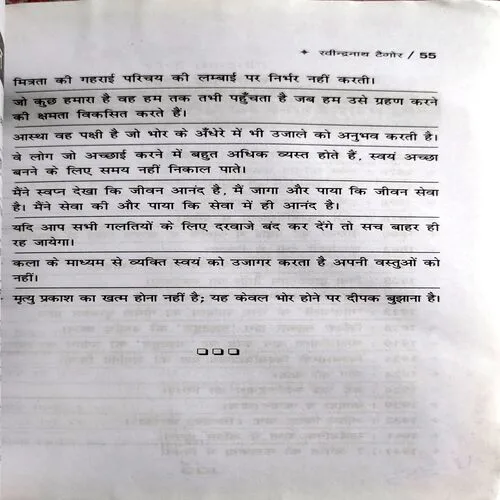 ✦ रवीन्द्रनाथ टैगोर / 55
मित्रता की गहराई परिचय की लम्बाई पर निर्भर नहीं करती।
जो कुछ हमारा है वह हम तक तभी पहुँचता है जब हम उसे ग्रहण करने
की क्षमता विकसित करते हैं।
आस्था वह पक्षी है जो भोर के अँधेरे में भी उजाले को अनुभव करती है।
वे लोग जो अच्छाई करने में बहुत अधिक व्यस्त होते हैं, स्वयं अच्छा
बनने के लिए समय नहीं निकाल पाते।
मैंने स्वप्न देखा कि जीवन आनंद है, मैं जागा और पाया कि जीवन सेवा
है। मैंने सेवा की और पाया कि सेवा में ही आनंद है।
यदि आप सभी गलतियों के लिए दरवाजे बंद कर देंगे तो सच बाहर ही
रह जायेगा।
कला के माध्यम से व्यक्ति स्वयं को उजागर करता है अपनी वस्तुओं को
नहीं।
मृत्यु प्रकाश का खत्म होना नहीं है; यह केवल भोर होने पर दीपक बुझाना है।